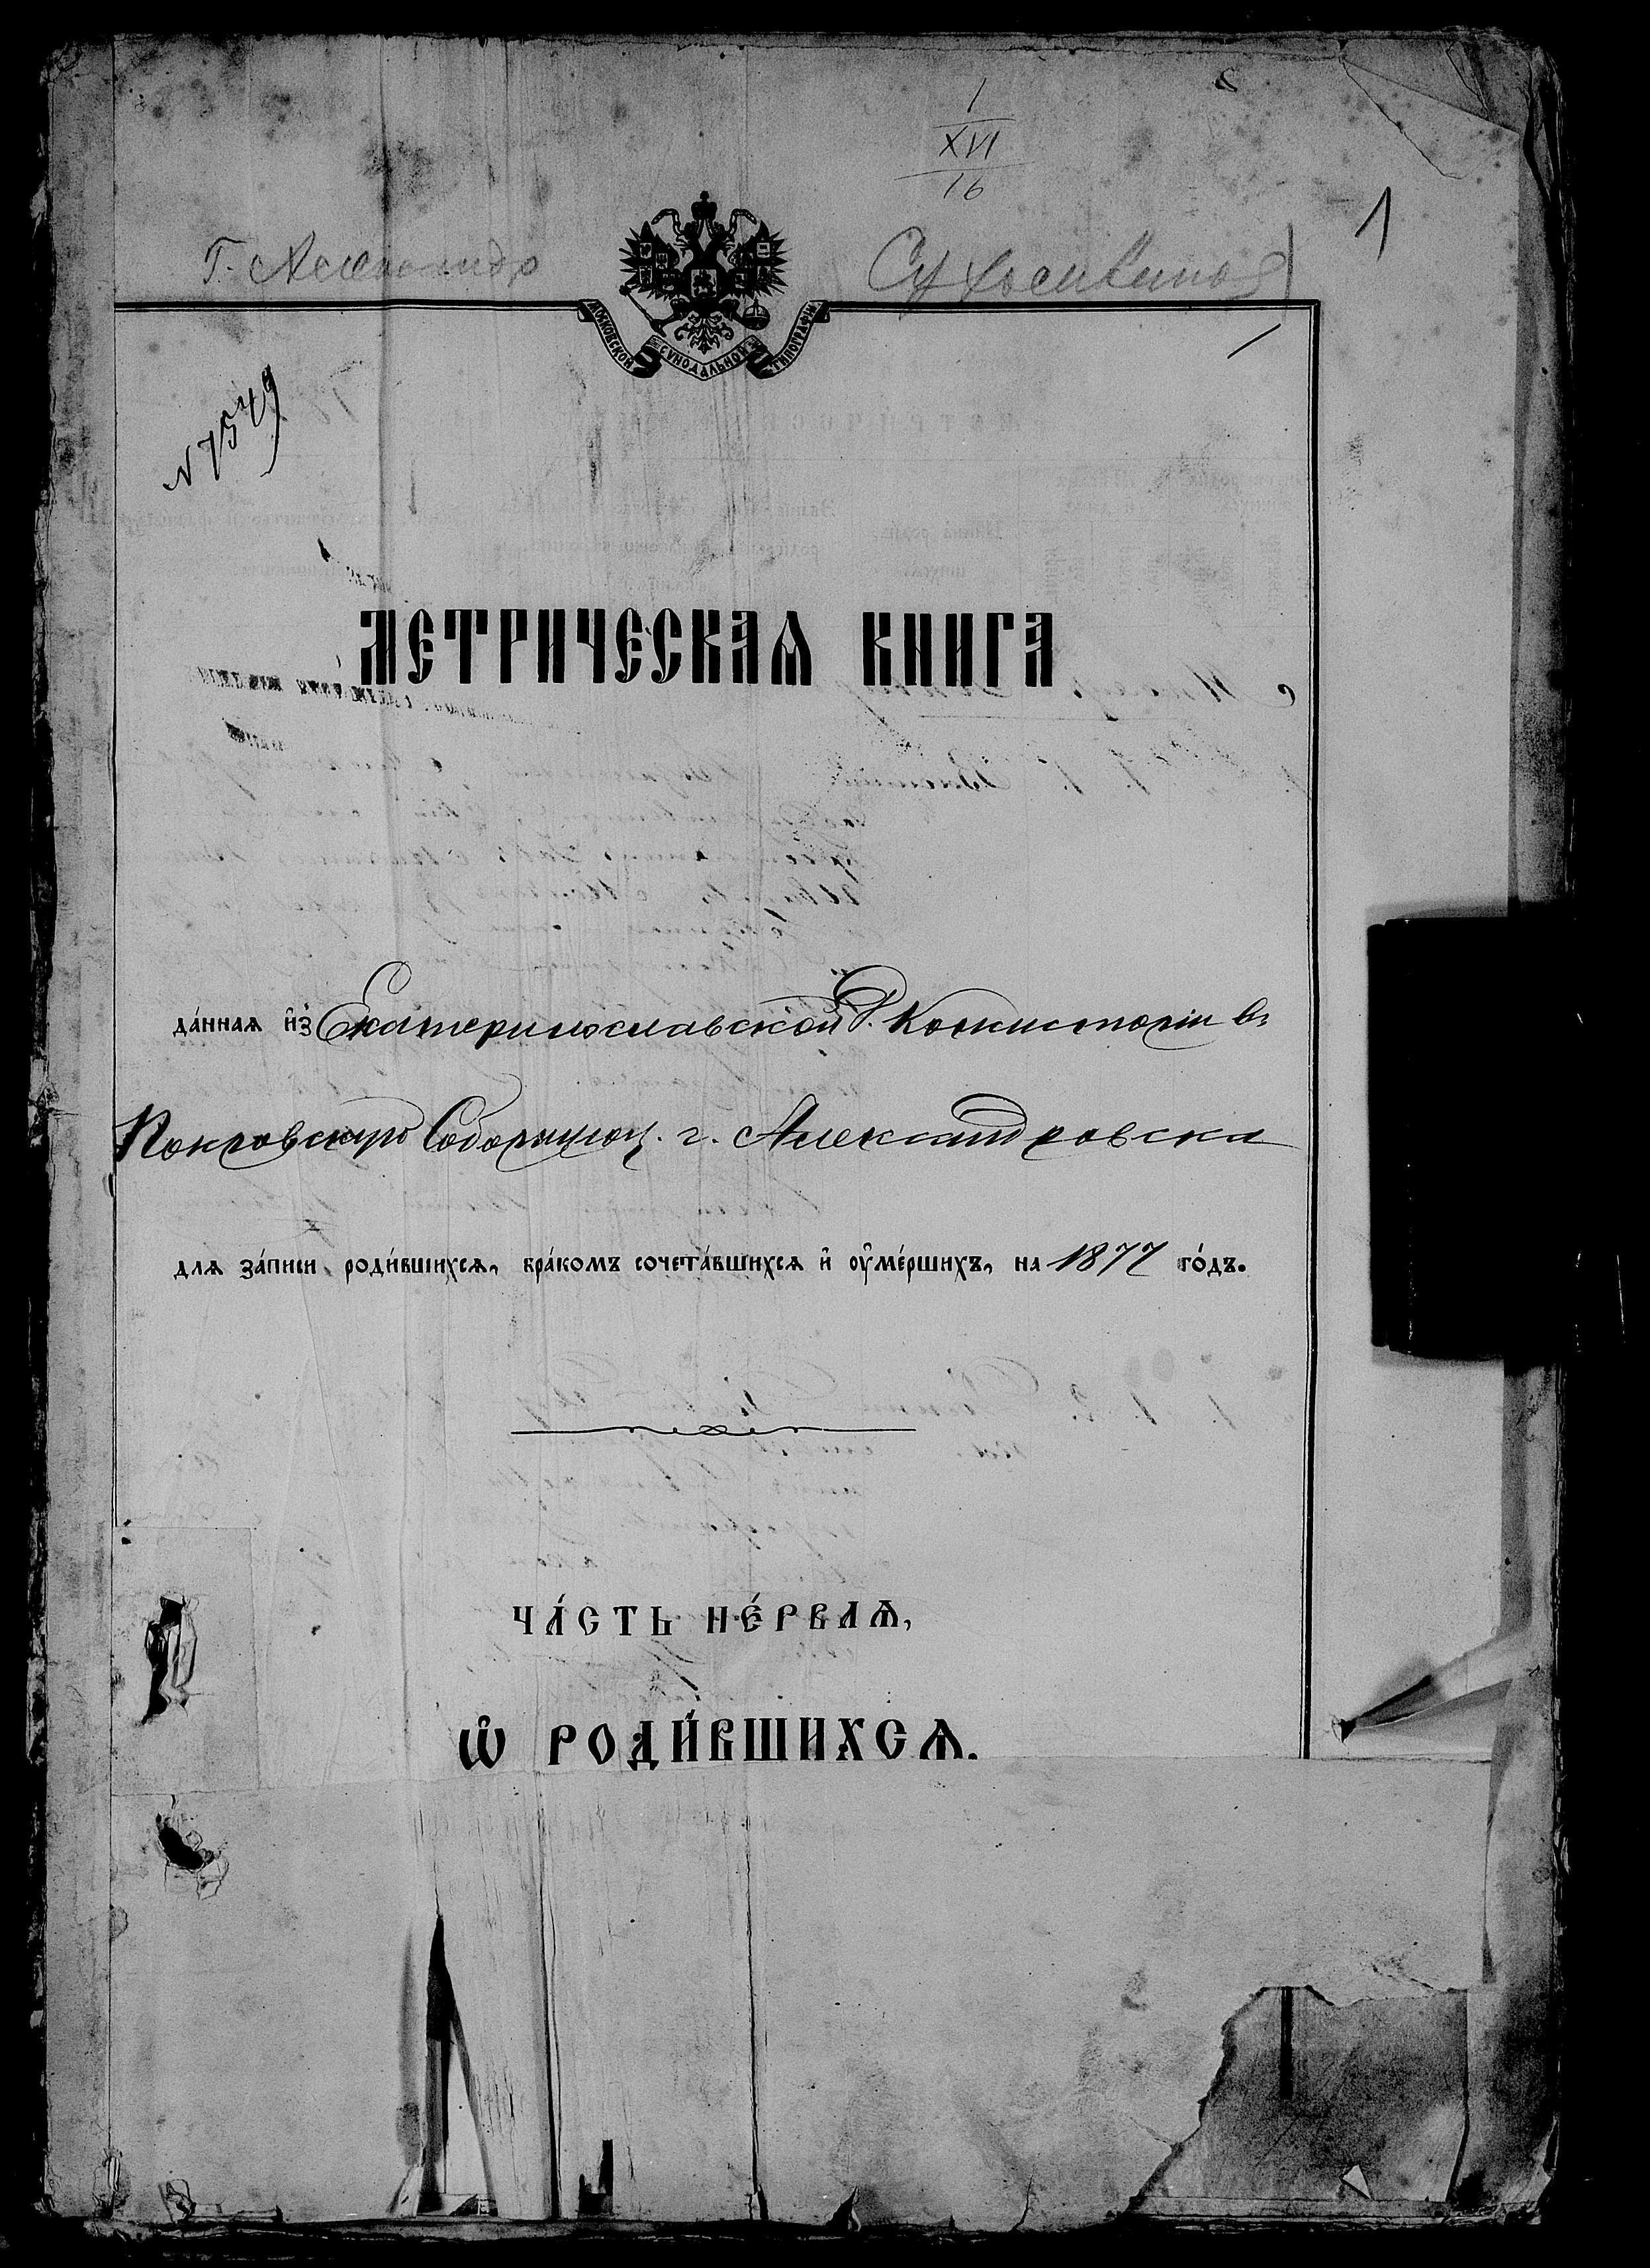 1
XVI
16
1
МОСКОВСКОЙ СѴНОДАЛЬНОЙ ТИПОГРАФІИ
N 7549
МЕТРИЧЕСКАЯ КНИГА
да́ннаѧ и҆з̾ Екатеринославской Д. Консисторіи въ
Покровскую Соборную ц. г. Александровска
длѧ за́писи роди́вшихсѧ, бра́комъ сочета́вшихсѧ и҆ ᲂу҆ме́ршихъ, на 1877 го́дъ.
ЧА́СТЬ ПЕ́РВАѦ,
Ѡ҆ РОДИ́ВШИХСѦ.